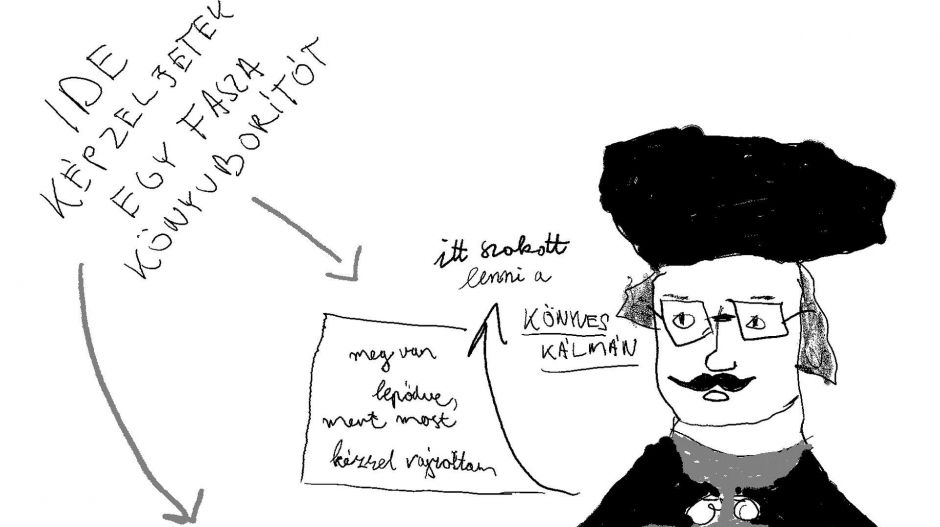 IDE
KÉPZELJETEK
EGY FASZA
KÖNYVBORÍTÓT
itt szokott
lenni a
KÖNYVES
KÁLMÁN
meg van
lepődve,
mert most
kézzel rajzoltam